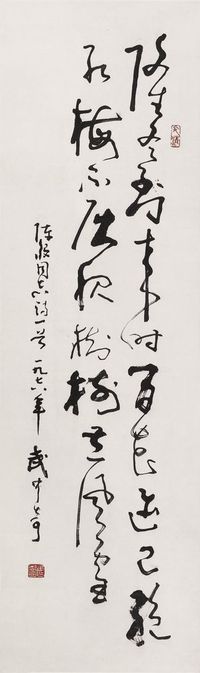 隆冬到来时百花迹已绝
红梅不屈服树树立风雪
陈毅同志诗一首一九七六年武中奇